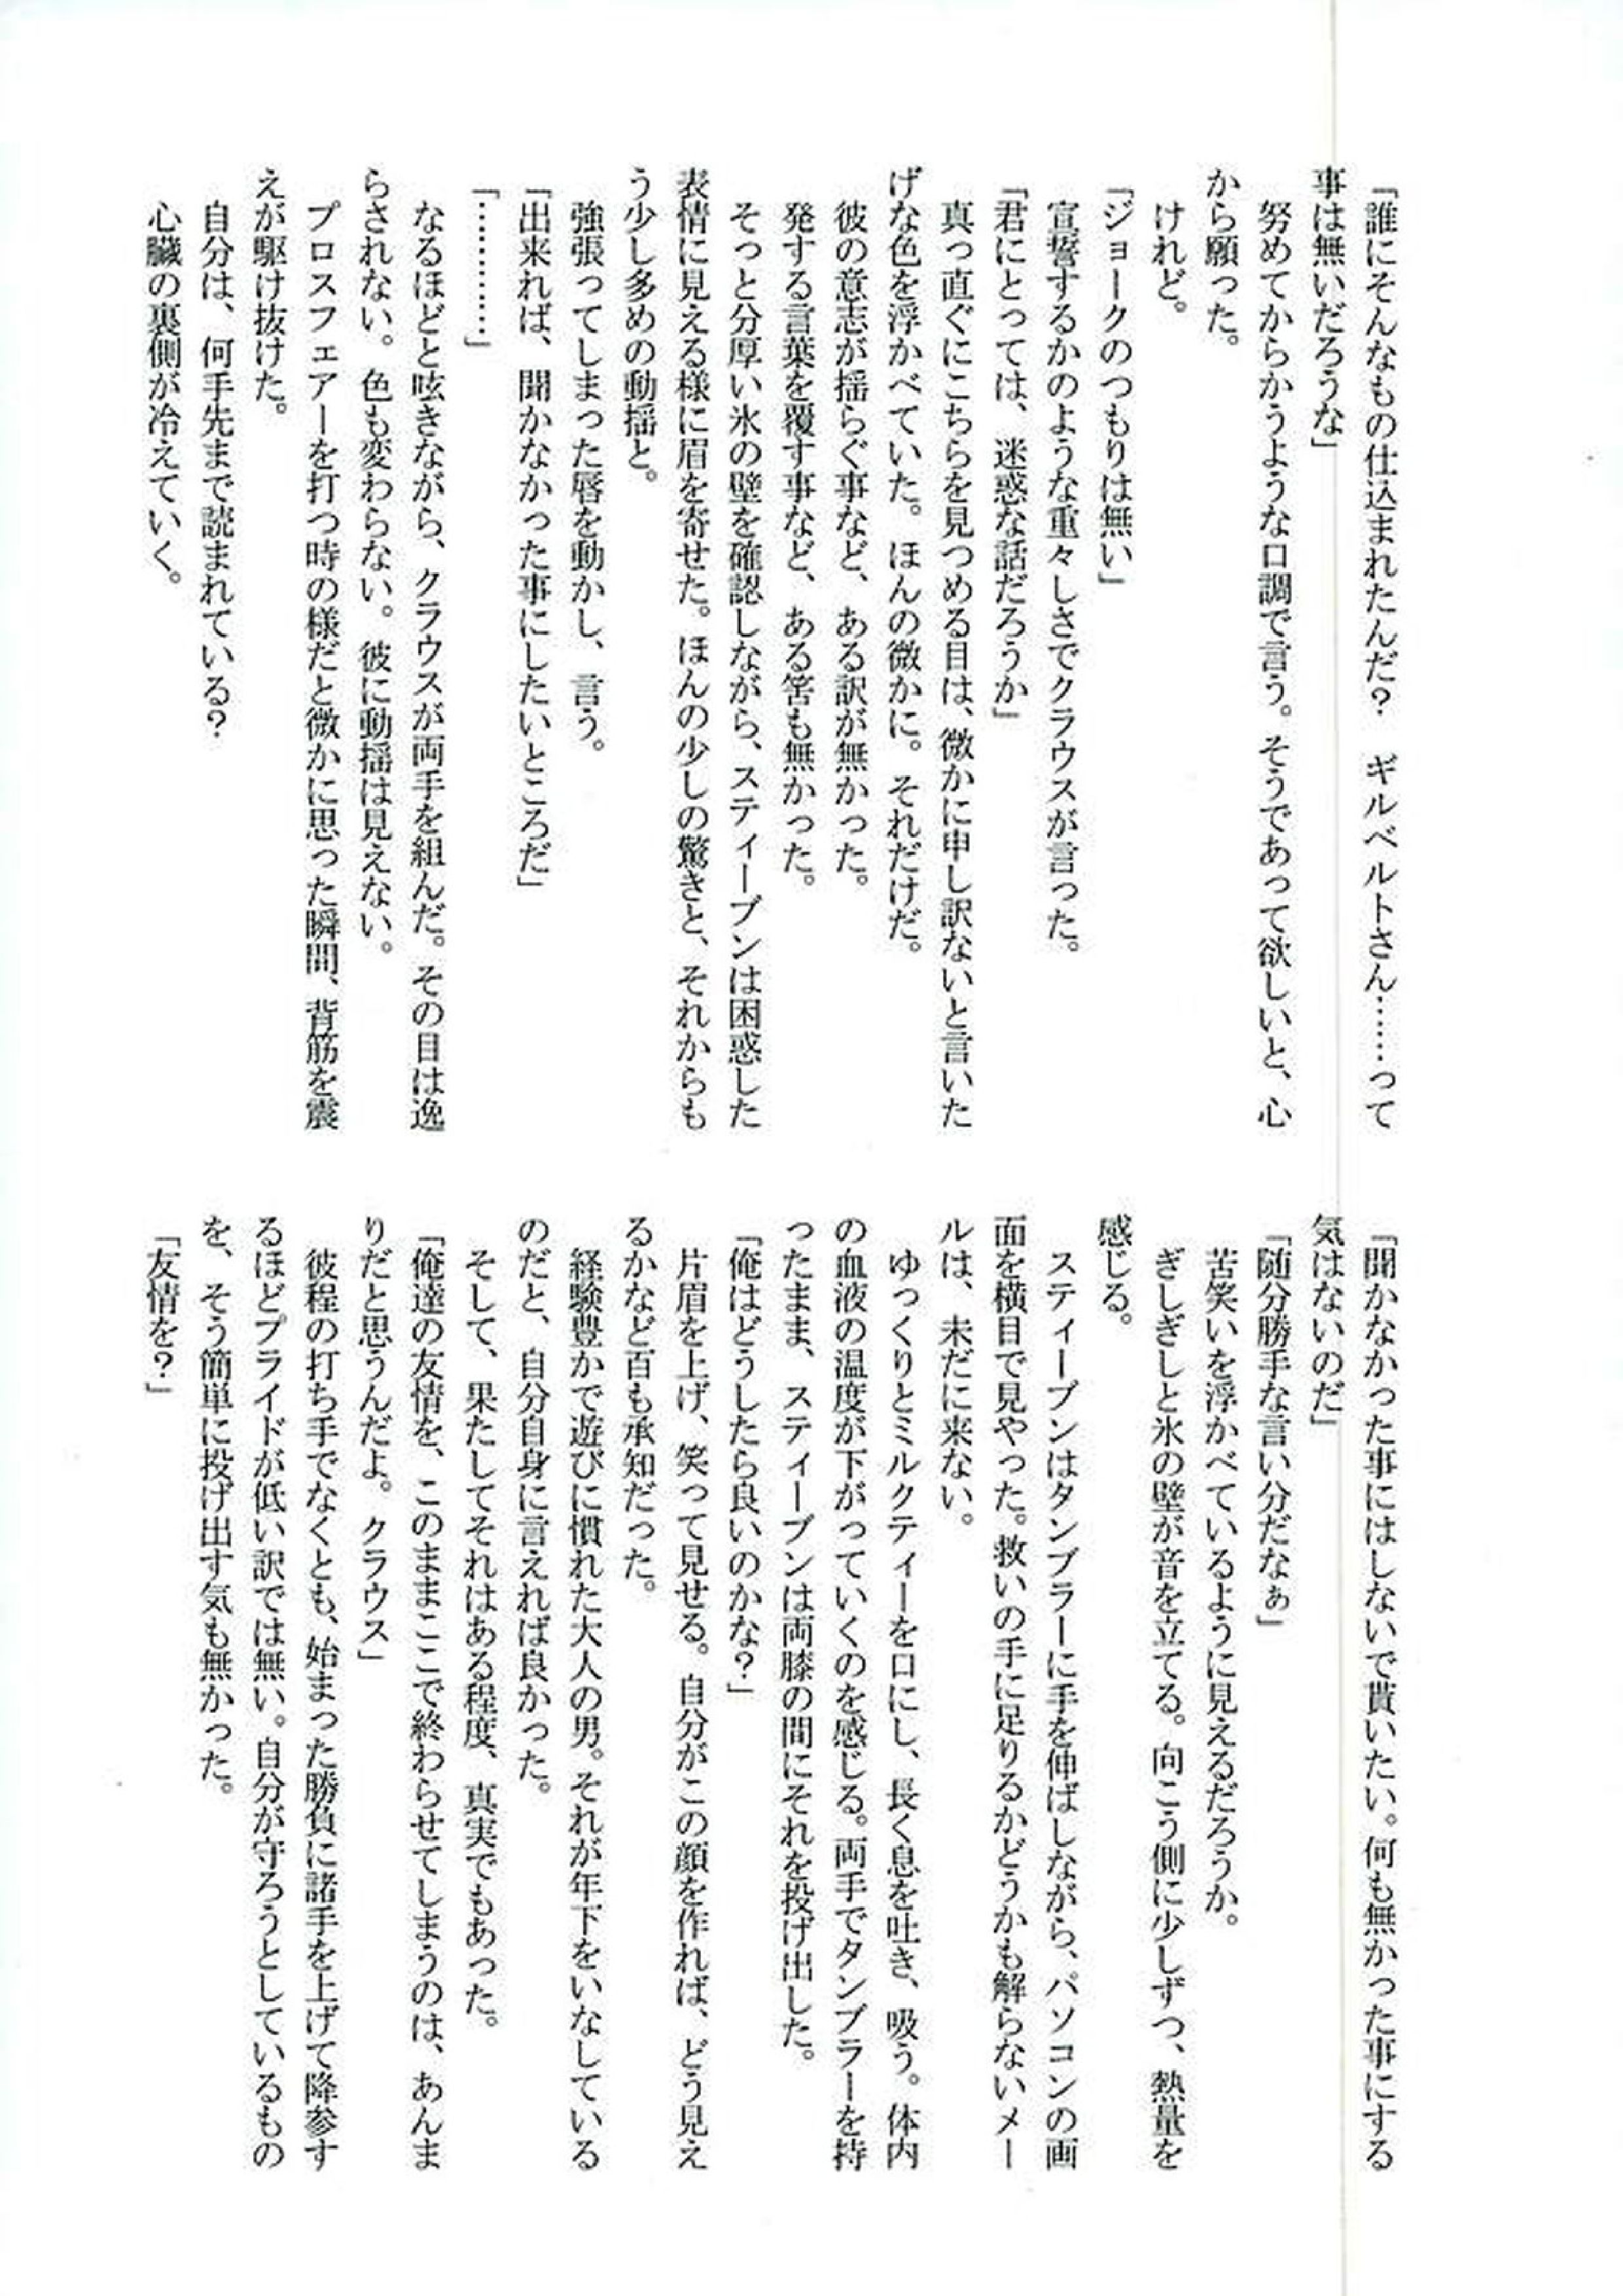 「誰にそんなもの仕込まれたんだ？　ギルベルトさん……って
事は無いだろうな」
　努めてからかうような口調で言う。そうであって欲しいと、心
から願った。
　けれど。
「ジョークのつもりは無い」
　宣誓するかのような重々しさでクラウスが言った。
「君にとっては、迷惑な話だろうか」
　真っ直ぐにこちらを見つめる目は、微かに申し訳ないと言いた
げな色を浮かべていた。ほんの微かに。それだけだ。
　彼の意志が揺らぐ事など、ある訳が無かった。
　発する言葉を覆す事など、ある筈も無かった。
　そっと分厚い氷の壁を確認しながら、スティーブンは困惑した
表情に見える様に眉を寄せた。ほんの少しの驚きと、それからも
う少し多めの動揺と。
　強張ってしまった唇を動かし、言う。
「出来れば、聞かなかった事にしたいところだ」
「…………」
　なるほどと呟きながら、クラウスが両手を組んだ。その目は逸
らされない。色も変わらない。彼に動揺は見えない。
　プロスフェアーを打つ時の様だと微かに思った瞬間、背筋を震
えが駆け抜けた。
　自分は、何手先まで読まれている？
　心臓の裏側が冷えていく。
「聞かなかった事にはしないで貰いたい。何も無かった事にする
気はないのだ」
「随分勝手な言い分だなぁ」
　苦笑いを浮かべているように見えるだろうか。
　ぎしぎしと氷の壁が音を立てる。向こう側に少しずつ、熱量を
感じる。
　スティーブンはタンブラーに手を伸ばしながら、パソコンの画
面を横目で見やった。救いの手に足りるかどうかも解らないメー
ルは、未だに来ない。
　ゆっくりとミルクティーを口にし、長く息を吐き、吸う。体内
の血液の温度が下がっていくのを感じる。両手でタンブラーを持
ったまま、スティーブンは両膝の間にそれを投げ出した。
「俺はどうしたら良いのかな？」
　片眉を上げ、笑って見せる。自分がこの顔を作れば、どう見え
るかなど百も承知だった。
　経験豊かで遊びに慣れた大人の男。それが年下をいなしている
のだと、自分自身に言えれば良かった。
　そして、果たしてそれはある程度、真実でもあった。
「俺達の友情を、このままここで終わらせてしまうのは、あんま
りだと思うんだよ。クラウス」
　彼程の打ち手でなくとも、始まった勝負に諸手を上げて降参す
るほどプライドが低い訳では無い。自分が守ろうとしているもの
を、そう簡単に投げ出す気も無かった。
「友情を？」